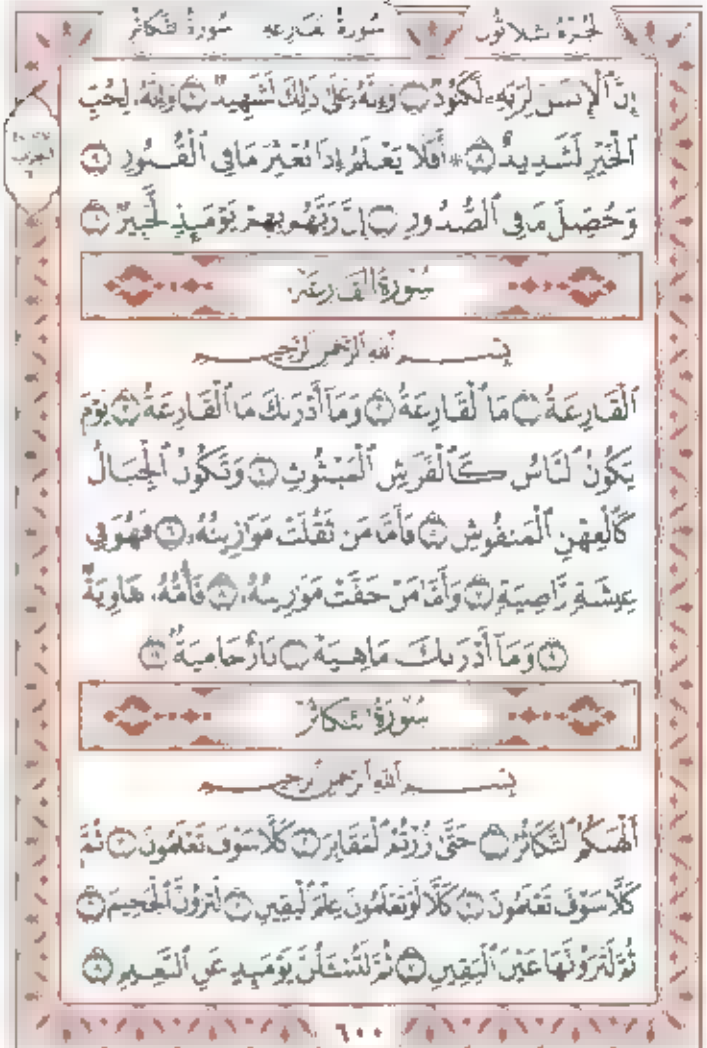 الجزء الثلاثون سورة القارعة سورة التكاثر
إِنَّ ٱلْإِنسَٰنَ لِرَبِّهِۦ لَكَنُودٌ ۝٦ وَإِنَّهُۥ عَلَىٰ ذَٰلِكَ لَشَهِيدٌ ۝٧ وَإِنَّهُۥ لِحُبِّ
ٱلْخَيْرِ لَشَدِيدٌ ۝٨ ۞ أَفَلَا يَعْلَمُ إِذَا بُعْثِرَ مَا فِى ٱلْقُبُورِ ۝٩
وَحُصِّلَ مَا فِى ٱلصُّدُورِ ۝١٠ إِنَّ رَبَّهُم بِهِمْ يَوْمَئِذٍ لَّخَبِيرٌۢ ۝١١
سُورَةُ القَارِعَةِ
بِسْمِ ٱللَّهِ ٱلرَّحْمَٰنِ ٱلرَّحِيمِ
ٱلْقَارِعَةُ ۝١ مَا ٱلْقَارِعَةُ ۝٢ وَمَآ أَدْرَىٰكَ مَا ٱلْقَارِعَةُ ۝٣ يَوْمَ
يَكُونُ ٱلنَّاسُ كَٱلْفَرَاشِ ٱلْمَبْثُوثِ ۝٤ وَتَكُونُ ٱلْجِبَالُ
كَٱلْعِهْنِ ٱلْمَنفُوشِ ۝٥ فَأَمَّا مَن ثَقُلَتْ مَوَٰزِينُهُۥ ۝٦ فَهُوَ فِى
عِيشَةٍ رَّاضِيَةٍ ۝٧ وَأَمَّا مَنْ خَفَّتْ مَوَٰزِينُهُۥ ۝٨ فَأُمُّهُۥ هَاوِيَةٌ
۝٩ وَمَآ أَدْرَىٰكَ مَا هِيَهْ ۝١٠ نَارٌ حَامِيَةٌۢ ۝١١
سُورَةُ التَّكَاثُرِ
بِسْمِ ٱللَّهِ ٱلرَّحْمَٰنِ ٱلرَّحِيمِ
أَلْهَىٰكُمُ ٱلتَّكَاثُرُ ۝١ حَتَّىٰ زُرْتُمُ ٱلْمَقَابِرَ ۝٢ كَلَّا سَوْفَ تَعْلَمُونَ ۝٣ ثُمَّ
كَلَّا سَوْفَ تَعْلَمُونَ ۝٤ كَلَّا لَوْ تَعْلَمُونَ عِلْمَ ٱلْيَقِينِ ۝٥ لَتَرَوُنَّ ٱلْجَحِيمَ ۝٦
ثُمَّ لَتَرَوُنَّهَا عَيْنَ ٱلْيَقِينِ ۝٧ ثُمَّ لَتُسْـَٔلُنَّ يَوْمَئِذٍ عَنِ ٱلنَّعِيمِ ۝٨
٦٠٠